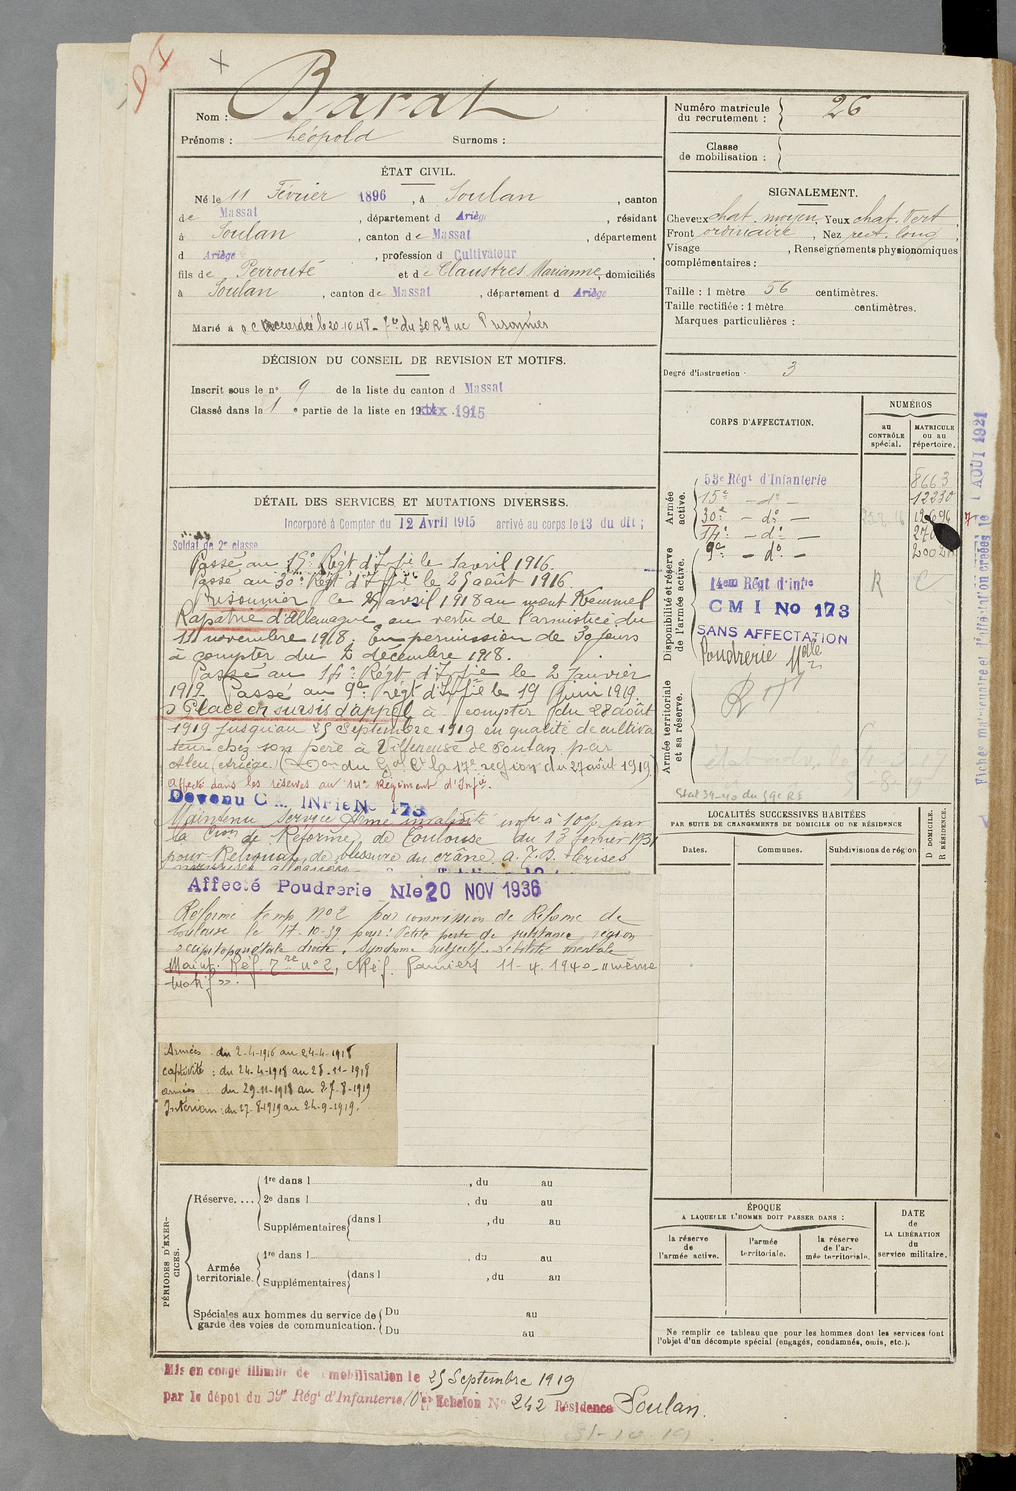 Nom : Barat
Prénoms : Léopold Surnoms :
Numéro matricule du recrutement : 26
Classe de mobilisation :
ÉTAT CIVIL.
Né le 11 Février 1896, à Soulan, canton
de Massat, département d Ariège, résidant
à Soulan, canton de Massat, département
d Ariège, profession d Cultivateur
fils de Perrouté et de Claustres Marianne, domiciliés
à Soulan, canton de Massat, département d Ariège
Marié à
DÉCISION DU CONSEIL DE REVISION ET MOTIFS.
Inscrit sous le n° 9 de la liste du canton d Massat
Classé dans la 1 e partie de la liste en 19 1915
SIGNALEMENT.
Cheveux chat. moyen, Yeux chat. vert
Front ordinaire, Nez rect. long,
Visage , Renseignements physionomiques
complémentaires :
Taille : 1 mètre 56 centimètres.
Taille rectifiée : 1 mètre centimètres.
Marques particulières :
Degré d'instruction : 3
DÉTAIL DES SERVICES ET MUTATIONS DIVERSES.
Incorporé à Compter du 12 Avril 1915 arrivé au corps le 13 du dit ;
Soldat de 2e classe
Passé au 15e Régt d'Infie le 1 avril 1916.
Passé au 30e Régt d'Infie le 25 août 1916.
Prisonnier le 24 avril 1918 au mont Kemmel
Rapatrié d'Allemagne au verso de l'armistice du
11 novembre 1918. En permission de 30 jours
à compter du 2 décembre 1918.
Passé au 14e Régt d'Infie le 2 Janvier
1919. Passé au 9e régt d'Infie le 19 Juin 1919.
Placé en sursis d'appel à compter du 28 août
1919 jusqu'au 25 Septembre 1919 en qualité de cultiva
teur chez son père à Villeneuve de Soulan par
Aleu (Ariège) (Don du Gal Ct la 17e région du 27 août 1919)
Affecté dans les réserves au 14e Régiment d'Infie.
Devenu C M INFie No 173
Maintenu service armé invalidité infre à 10% par
la Cion de Réforme de Toulouse du 13 février 1931
pour Reliquat de blessure du crâne
Affecté Poudrerie Nle 20 NOV 1936
Réformé temp. No 2 par commission de Réforme de
Toulouse le 17-10-39 pour : Petite perte de substance région
occipitopariétale droite. Syndrome subjectif. Débilité mentale
Maint. Réf. Tre n° 2, Réf. Pamiers 11-4-1940 "même
motif".
Armées : du 2-4-1916 au 24-4-1918
captivité : du 24-4-1918 au 28-11-1918
armées : du 29-11-1918 au 27-8-1919
Intérieur : du 27-8-1919 au 24-9-1919.
CORPS D'AFFECTATION.
NUMÉROS
au CONTRÔLE spécial.
MATRICULE ou au répertoire.
Armée active.
53e Régt d'Infanterie 8663
15e - do - 12230
30e - do - 12696
14e - do -
9e - do -
Disponibilité et réserve de l'armée active.
14eme Régt d'Infie R C
C M I No 173
SANS AFFECTATION
Poudrerie Nale
Armée territoriale et sa réserve.
Fiches matriculaire et d'affectation créées le 1 AOUT 1921
LOCALITÉS SUCCESSIVES HABITÉES
PAR SUITE DE CHANGEMENTS DE DOMICILE OU DE RÉSIDENCE
Dates. Communes. Subdivisions de région D DOMICILE. R RÉSIDENCE.
PÉRIODES D'EXERCICES.
Réserve.... 1re dans l , du au
2e dans l , du au
Supplémentaires dans l , du au
Armée territoriale. 1re dans l , du au
Supplémentaires dans l , du au
Spéciales aux hommes du service de garde des voies de communication. Du au
Du au
ÉPOQUE
A LAQUELLE L'HOMME DOIT PASSER DANS :
la réserve de l'armée active.
l'armée territoriale.
la réserve de l'armée territoriale.
DATE de LA LIBÉRATION du service militaire.
Ne remplir ce tableau que pour les hommes dont les services font
l'objet d'un décompte spécial (engagés, condamnés, omis, etc.).
Mis en congé illimité de démobilisation le 25 Septembre 1919
par le dépôt du 59e Régt d'Infanterie Echelon No 242 Résidence Soulan.